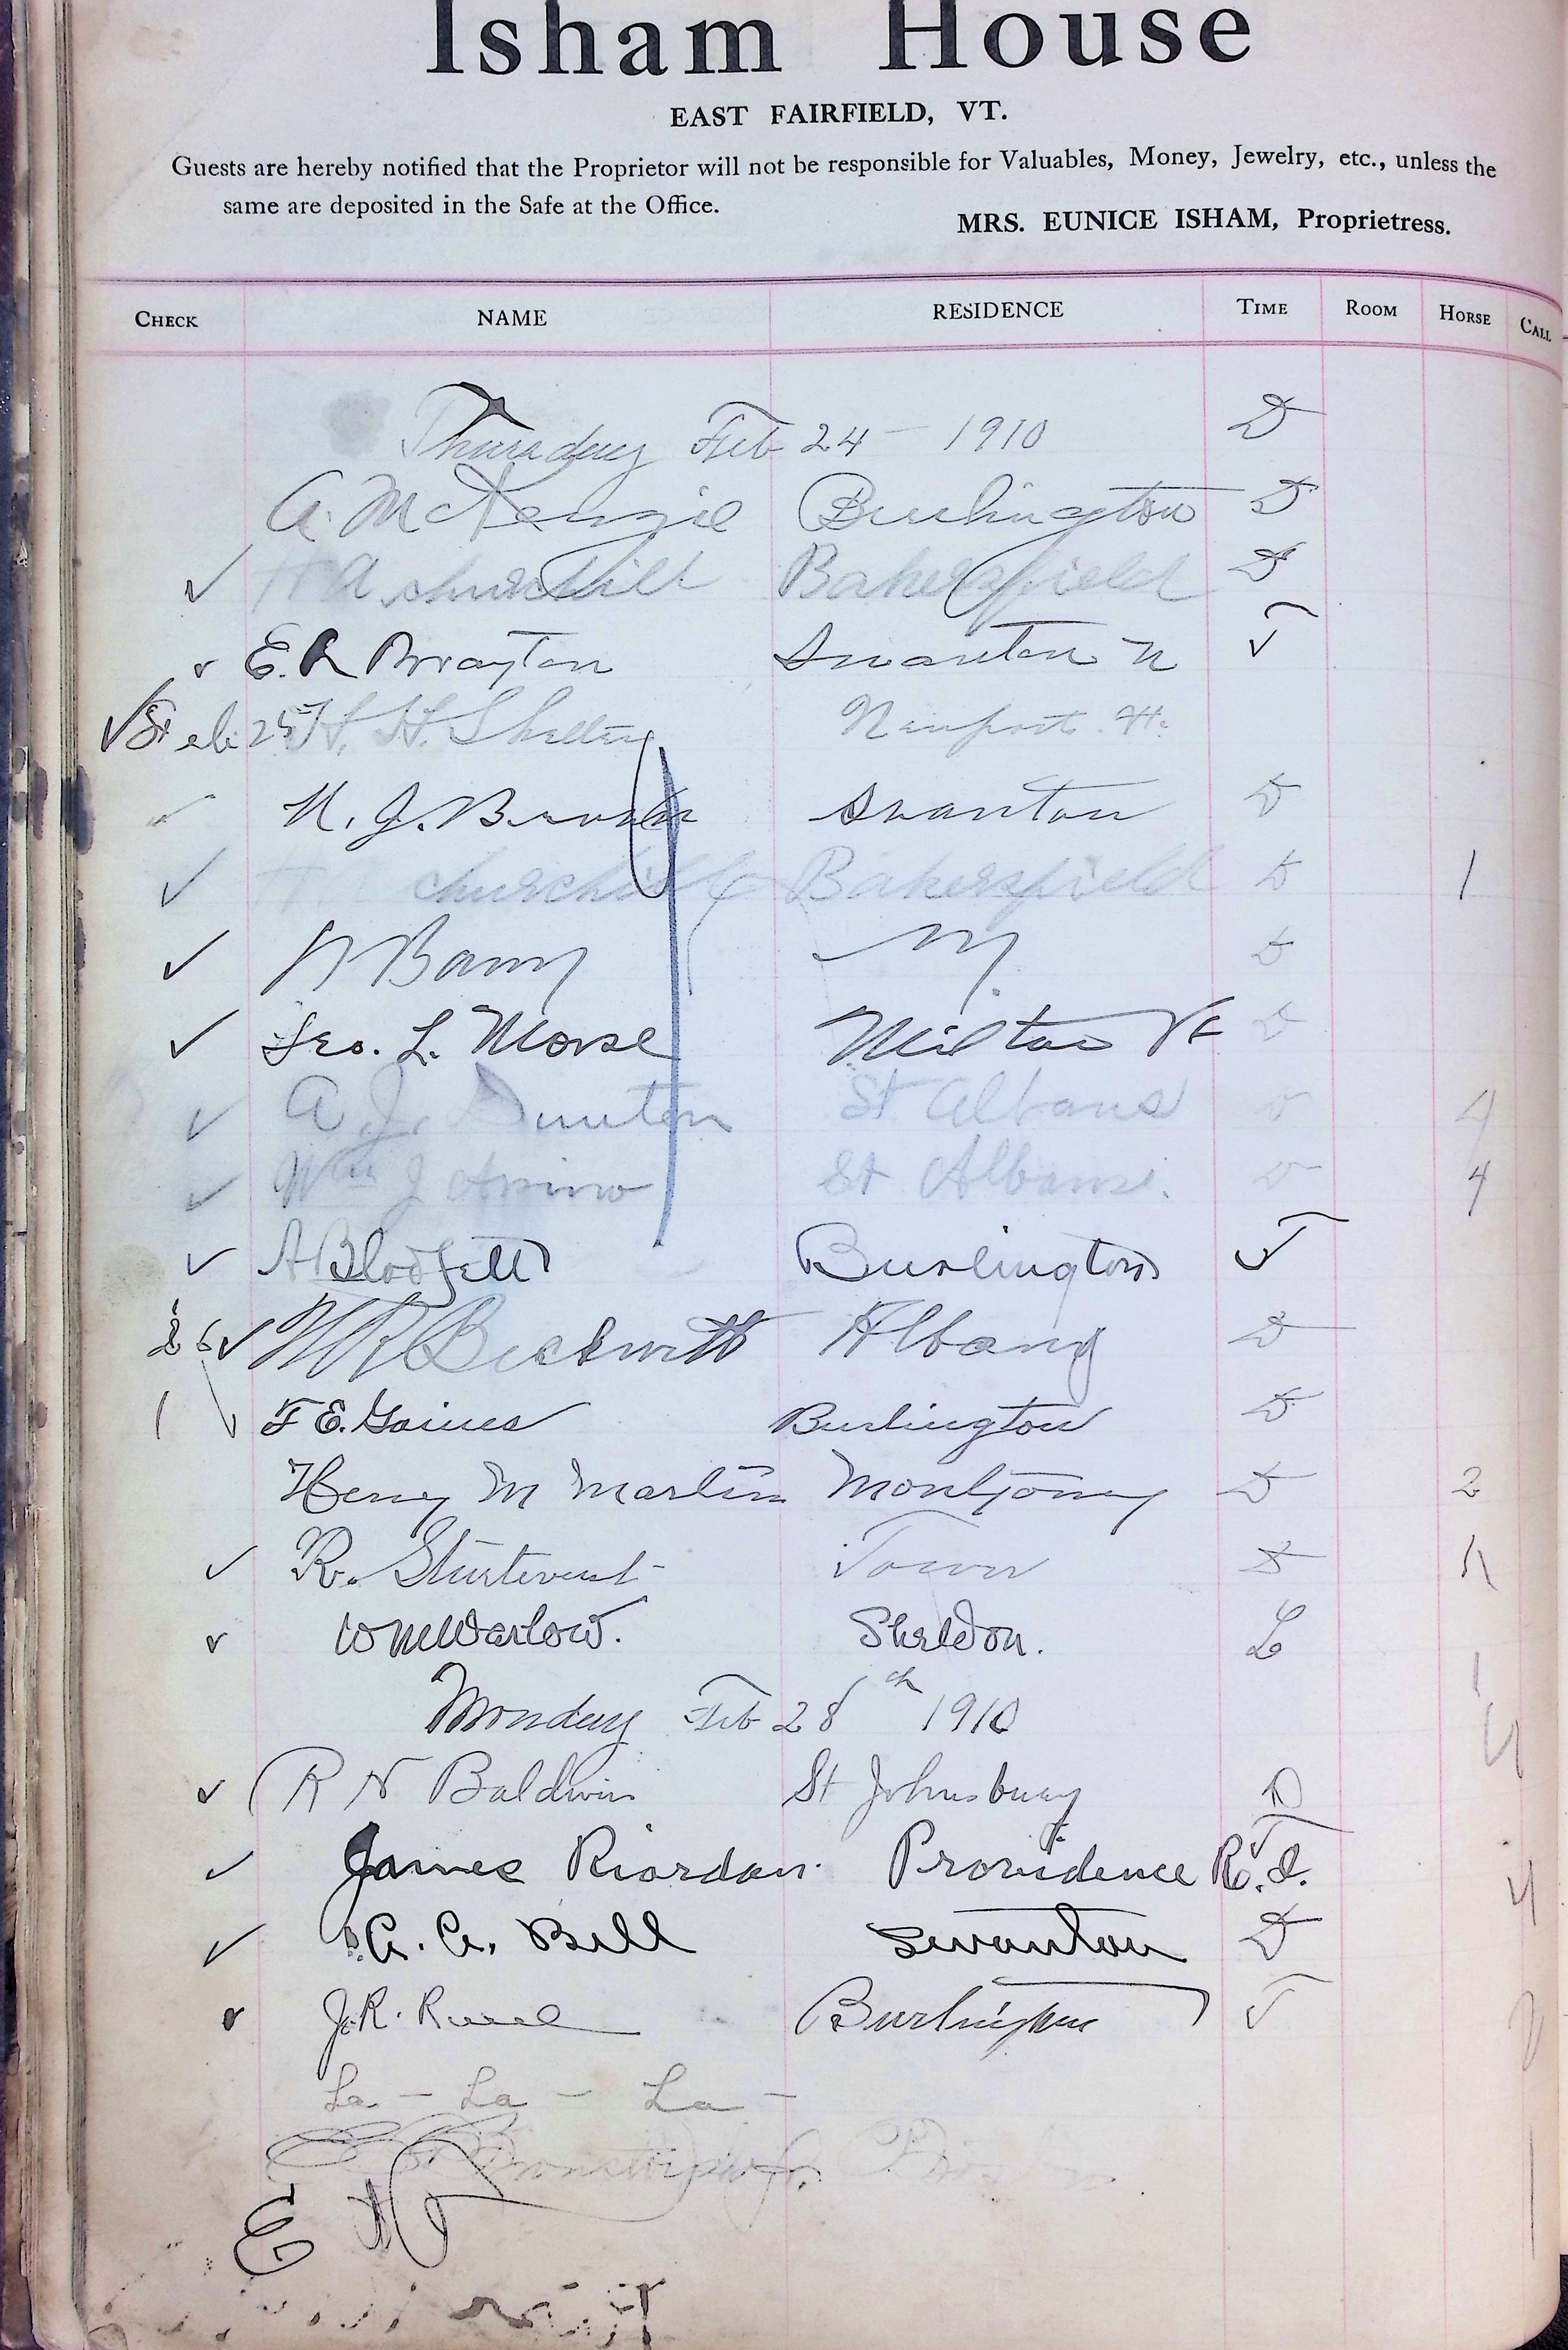 Isham House
EAST FAIRFIELD, VT.
Guests are hereby notified that the Proprietor will not be responsible for Valuables, Money, Jewelry, etc., unless the
same are deposited in the Safe at the Office.
MRS. EUNICE ISHAM, Proprietress.
CHECK NAME RESIDENCE TIME ROOM HORSE CALL
Thursday Feb 24 - 1910 D
A. McKenzie Burlington D
✓ H A churchill Bakersfield D
✓ E. R Brayton Swanton
✓ Feb 25 H. H. Shelton Newport
✓ N. J. Brown Swanton D
✓ churchill Bakersfield D 1
✓ Barry D
✓ Geo. L. Morse Milton Vt D
✓ A J. Dunton St Albans D 4
✓ Wm J St Albans. D 4
✓ A Blodgett Burlington
26 ✓ W R Beckwith Albany D
1 F E. Gaines Burlington D
Henry M Martin Montgomery D 2
✓ R. Sturtevant Town D
✓ Wm Warlow. Sheldon. L
Monday Feb 28th 1910
✓ R N Baldwin St Johnsbury D
✓ James Riordan. Providence R. I.
✓ A. A. Bell Swanton D
✓ J. R. Burlington
La - La - La -